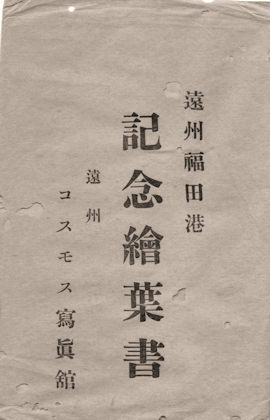 遠州福田港
記念繪葉書
遠州
コスモス寫眞舘